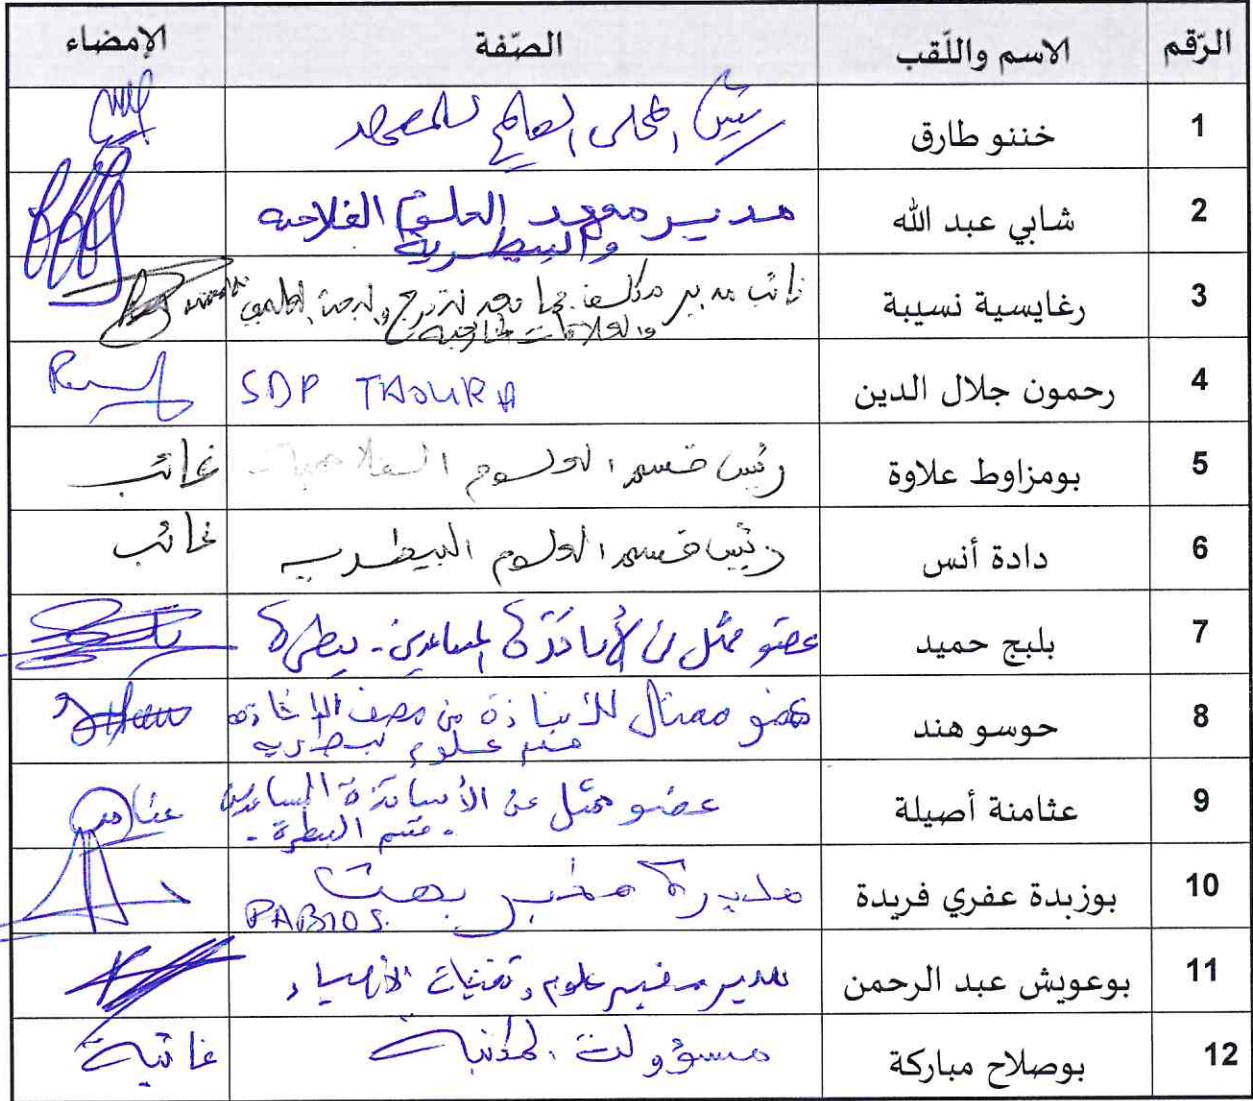 الرّقم الاسم واللّقب الصّفة الإمضاء
1 خننو طارق رئيس المجلس العلمي للمعهد
2 شابي عبد الله مدير معهد العلوم الفلاحية
والبيطرية
3 رغايسية نسيبة نائب مدير مكلف بما بعد التدرج والبحث العلمي
والعلاقات الخارجية
4 رحمون جلال الدين SDP TAOURA
5 بومزاوط علاوة رئيس قسم العلوم الفلاحية غائب
6 دادة أنس رئيس قسم العلوم البيطرية غائب
7 بلبج حميد عضو ممثل عن الأساتذة المساعدين - بيطرة
8 حوسو هند عضو ممثل للأساتذة من مصف الأساتذة
قسم علوم بيطرية
9 عثامنة أصيلة عضو ممثل عن الأساتذة المساعدين
- قسم البيطرة -
10 بوزبدة عفري فريدة مديرة مخبر بحث
PABIOS.
11 بوعويش عبد الرحمن مدير مخبر علوم وتقنيات الأحياء
12 بوصلاح مباركة مسؤولة المكتبة غائبة